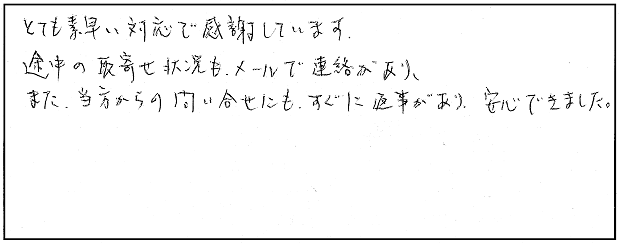 とても素早い対応で感謝しています.
途中の取寄せ状況も、メールで連絡があり、
また、当方からの問い合せにも、すぐに返事があり、安心できました。